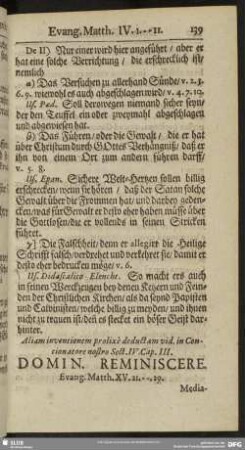 Evang. Matth. IV. 1.--11. 139
De II) Nur einer wird hier angeführt / aber er
hat eine solche Verrichtung / die erschrecklich ist/
nemlich
α) Das Versuchen zu allerhand Sünde/ v. 2.3.
6. 9. wiewohl es auch abgeschlagen wird/ v. 4. 7. 10.
Us. Pæd. Soll derowegen niemand sicher seyn/
der den Teuffel ein oder zweymahl abgeschlagen
und abgewiesen hat.
β) Das Führen/ oder die Gewalt / die er hat
über Christum durch GOttes Verhängniß/ daß er
ihn von einem Ort zum andern führen darff/
v. 5 8.
Us. Epan. Sichere Welt-Hertzen sollen billig
erschrecken/ wenn sie hören / daß der Satan solche
Gewalt über die Frommen hat/ und darbey geden-
cken/ was für Gewalt er desto eher haben müsse über
die Gottlosen/ die er vollends in seinen Stricken
führet.
γ) Die Falschheit/ denn er allegirt die Heilige
Schrifft falsch/ verdrehet und verkehret sie/ damit er
desto eher bedrucken möge/ v. 6.
Us. Didascalico Elencht. So macht ers auch
in seinen Werckzeugen bey denen Ketzern und Fein-
den der Christlichen Kirchen/ als da seynd Papisten
und Calvinisten/ welche billig zu meyden/ und ihnen
nicht zu trauen ist/ deñ es stecket ein böser Geist dar-
hinter.
Aliam inventionem prolixè deductam vid. in Con-
cionatore nostro Sect. IV. Cap. III.
DOMIN. REMINISCERE.
Evang. Matth. XV. 21.--29.
Media-